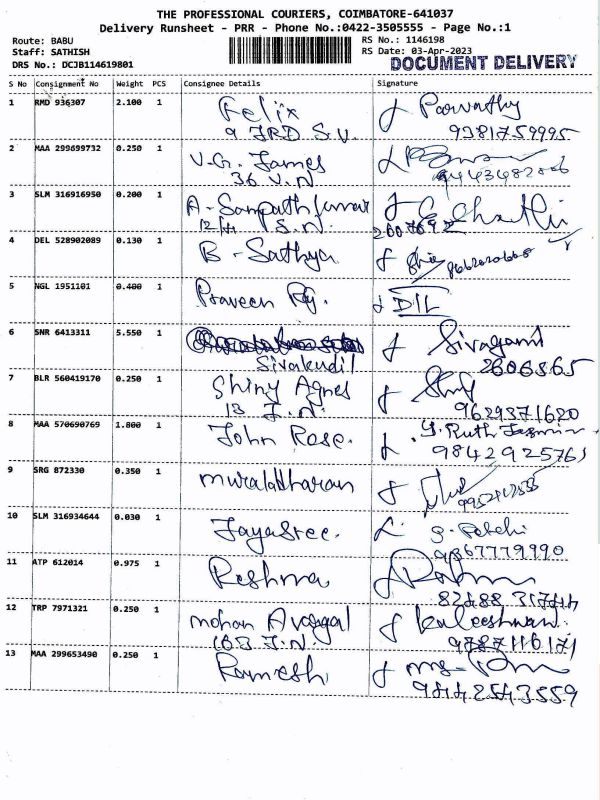 THE PROFESSIONAL COURIERS, COIMBATORE-641037
Delivery Runsheet - PRR - Phone No.:0422-3505555 - Page No.:1
Route: BABU
Staff: SATHISH
DRS No.: DCJB114619801
RS No.: 1146198
RS Date: 03-Apr-2023
DOCUMENT DELIVERY
S No Consignment No Weight PCS Consignee Details Signature
1 RMD 936307 2.100 1 Felix Parvathy
9 JRD S.V. 9381759995
2 MAA 299699732 0.250 1 V.G. James
36 V.N
3 SLM 316916950 0.200 1 A - Sampathkumar
12/H S.N
4 DEL 528902089 0.130 1 B - Sathya
5 NGL 1951101 0.400 1 Praveen Rg. DIL
6 SNR 6413311 5.550 1 Sivagami
Sivakudil 2606865
7 BLR 560419170 0.250 1 Shiny Agnes
13 J.N. 9629371620
8 MAA 570690769 1.800 1 John Rose. Y. Ruth Jasmin
9842925761
9 SRG 872330 0.350 1 muralatharan
10 SLM 316934644 0.030 1 Jayasree.
9367779990
11 ATP 612014 0.975 1 Reshma
12 TRP 7971321 0.250 1 mohan
163 J.N. 9787116171
13 MAA 299653490 0.250 1 Ramesh
9442543559